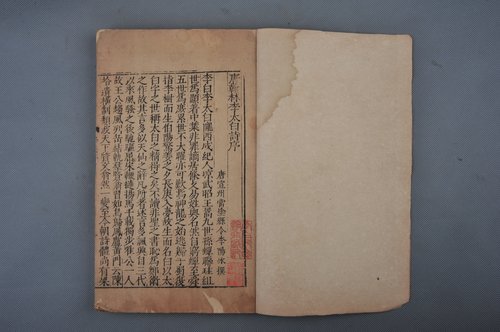 唐翰林李太白詩序
唐宣州當塗縣令李陽冰撰
李白字太白隴西成紀人凉武昭王暠九世孫蟬聯珪組
世爲顯著中葉非罪謫居條支易姓與名然自窮蟬至舜
五世爲庶累世不大曜亦可歎焉神龍之始逃歸于蜀復
指李樹而生伯陽驚姜之夕長庚入夢故生而名白以太
白字之世稱太白之精得之矣不讀非聖之書恥爲鄭衛
之作故其言多似天仙之辭凡所著述言多諷興自三代
以來風騷之後馳驅屈宋鞭撻揚馬千載獨步唯公一人
故王公趨風列岳結軌羣賢翕習如鳥歸鳳盧黃門云陳
拾遺橫制頹波天下質文翕然一變至今朝詩體尚有梁